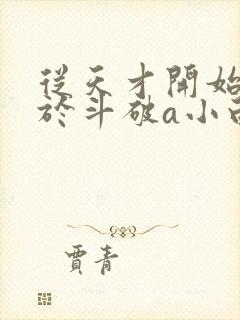 從天才開始
於斗破a小
賈青